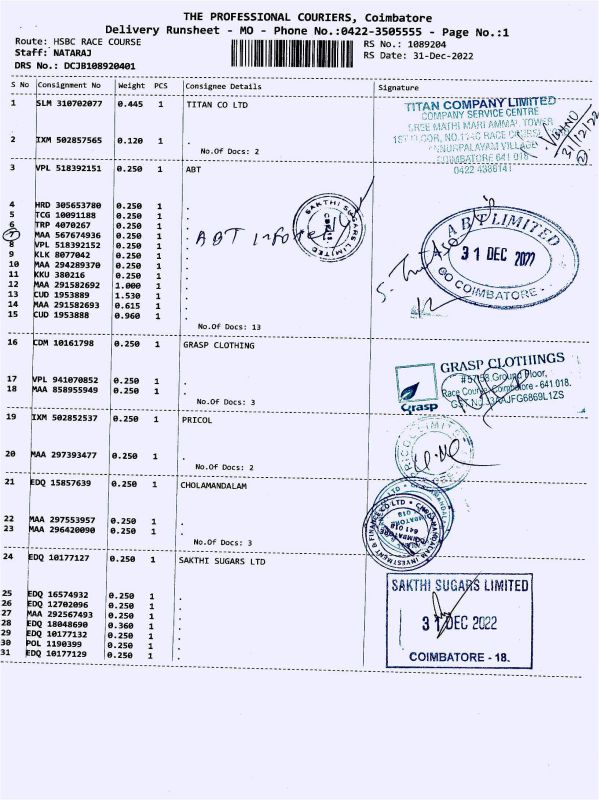 THE PROFESSIONAL COURIERS, Coimbatore
Delivery Runsheet - MO - Phone No.:0422-3505555 - Page No.:1
Route: HSBC RACE COURSE
RS No.: 1089204
Staff: NATARAJ
RS Date: 31-Dec-2022
DRS No.: DCJB108920401
S No Consignment No Weight PCS Consignee Details Signature
1 SLM 310702077 0.445 1 TITAN CO LTD
TITAN COMPANY LIMITED
COMPANY SERVICE CENTRE
SREE MATHI MARI AMMAL TOWER
COIMBATORE 641 018
0422 4386141
31/12/22
2 IXM 502857565 0.120 1 .
No.Of Docs: 2
3 VPL 518392151 0.250 1 ABT
4 HRD 305653780 0.250 1 .
5 TCG 10091188 0.250 1 .
6 TRP 4070267 0.250 1 .
7 MAA 567674936 0.250 1 .
8 VPL 518392152 0.250 1 .
9 KLK 8077042 0.250 1 .
10 MAA 294289370 0.250 1 .
11 KKU 380216 0.250 1 .
12 MAA 291582692 1.000 1 .
13 CUD 1953889 1.530 1 .
14 MAA 291582693 0.615 1 .
15 CUD 1953888 0.960 1 .
No.Of Docs: 13
ABT
SAKTHI SUGARS LIMITED
ABT LIMITED
31 DEC 2022
COIMBATORE -
16 CDM 10161798 0.250 1 GRASP CLOTHING
17 VPL 941070852 0.250 1 .
18 MAA 858955949 0.250 1 .
No.Of Docs: 3
Grasp
GRASP CLOTHINGS
Ground Floor,
Race Course, Coimbatore - 641 018.
19 IXM 502852537 0.250 1 PRICOL
20 MAA 297393477 0.250 1 .
No.Of Docs: 2
PRICOL LIMITED
21 EDQ 15857639 0.250 1 CHOLAMANDALAM
22 MAA 297553957 0.250 1 .
23 MAA 296420090 0.250 1 .
No.Of Docs: 3
CHOLAMANDALAM INVESTMENT & FINANCE CO LTD
COIMBATORE
641 018
24 EDQ 10177127 0.250 1 SAKTHI SUGARS LTD
25 EDQ 16574932 0.250 1 .
26 EDQ 12702096 0.250 1 .
27 MAA 292567493 0.250 1 .
28 EDQ 18048690 0.360 1 .
29 EDQ 10177132 0.250 1 .
30 POL 1190399 0.250 1 .
31 EDQ 10177129 0.250 1 .
SAKTHI SUGARS LIMITED
31 DEC 2022
COIMBATORE - 18.